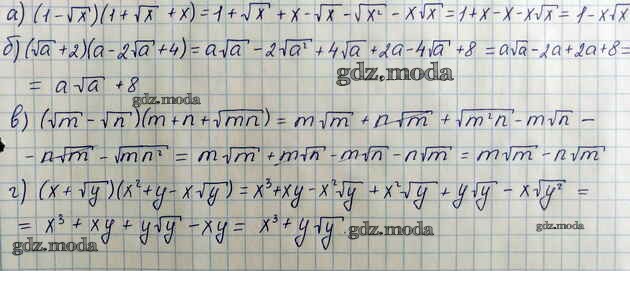 а) (1-√x)(1+√x+x)=1+√x+x-√x-√x²-x√x=1+x-x-x√x=1-x√x
б) (√a+2)(a-2√a+4)=a√a-2√a²+4√a+2a-4√a+8=a√a-2a+2a+8=
= a√a+8
gdz.moda
gdz.moda
в) (√m-√n)(m+n+√mn)=m√m+n√m+√m²n-m√n-
-n√m-√mn²=m√m+m√n-m√n-n√m=m√m-n√m
г) (x+√y)(x²+y-x√y)=x³+xy-x²√y+x²√y+y√y-x√y²=
= x³+xy+y√y-xy=x³+y√y
gdz.moda
gdz.moda
gdz.moda